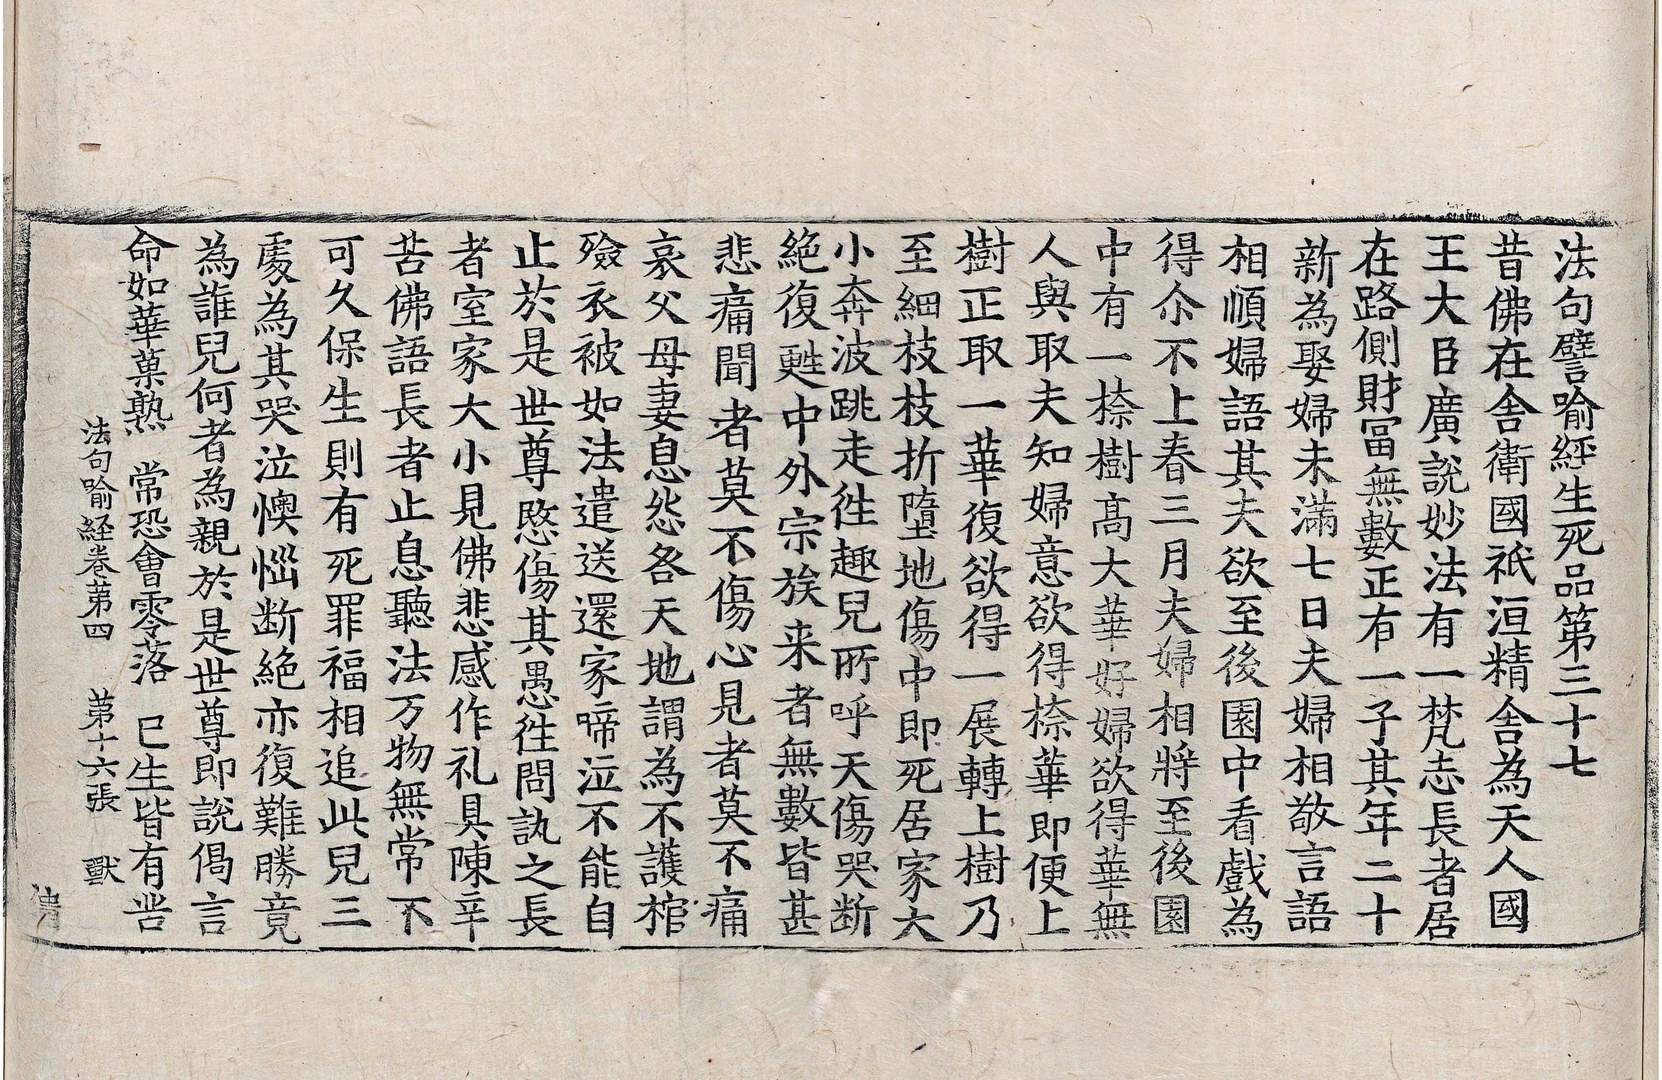 法句譬喻經生死品第三十七
昔佛在舍衛國祇洹精舍為天人國
王大臣廣說妙法有一梵志長者居
在路側財冨無數正有一子其年二十
新為娶婦未滿七日夫婦相敬言語
相順婦語其夫欲至後園中看戲為
得尒不上春三月夫婦相將至後園
中有一㮈樹高大華好婦欲得華無
人與取夫知婦意欲得㮈華即便上
樹正取一華復欲得一展轉上樹乃
至細枝枝折墮地傷中即死居家大
小奔波跳走徃趣兒所呼天傷哭断
絕復甦中外宗族来者無數皆甚
悲痛聞者莫不傷心見者莫不痛
哀父母妻息怨咎天地謂為不護棺
殮衣被如法遣送還家啼泣不能自
止於是世尊愍傷其愚徃問訊之長
者室家大小見佛悲感作礼具陳辛
苦佛語長者止息聽法万物無常不
可久保生則有死罪福相追此兒三
處為其哭泣懊惱断絕亦復難勝竟
為誰兒何者為親於是世尊即說偈言
命如華菓熟 常恐會零落 已生皆有苦
法句喻経卷第四 第十六張 獸